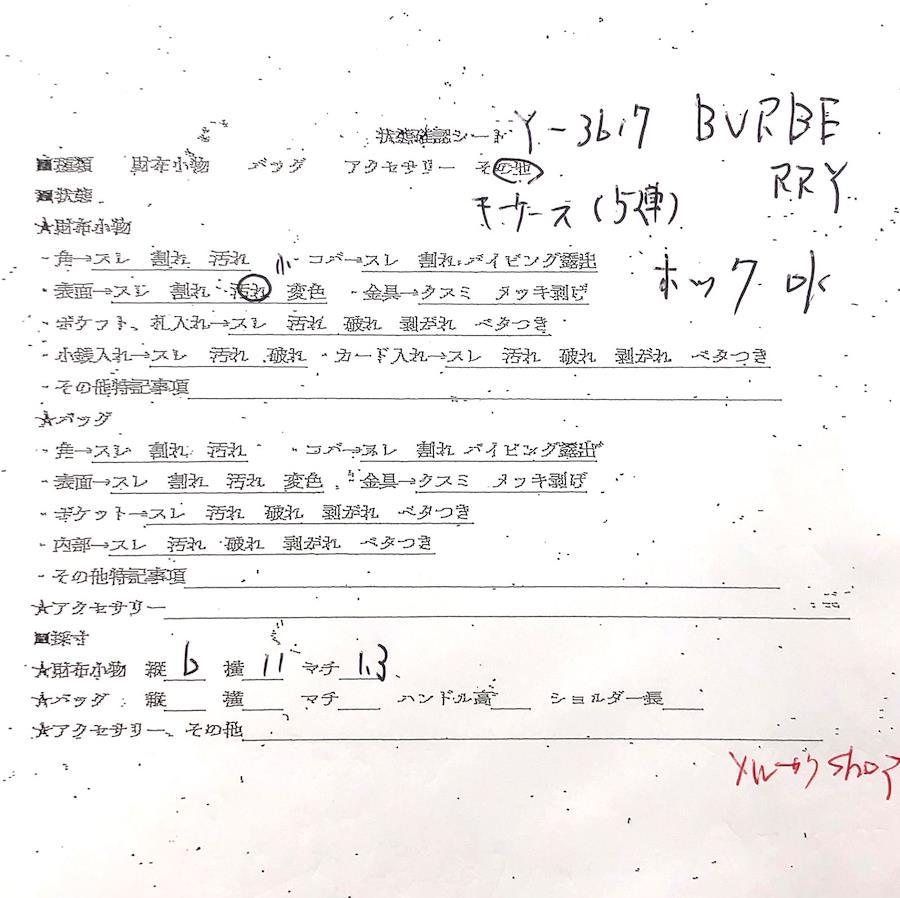 状態確認シート Y-3617 BURBE
RRY
■種類 財布小物 バッグ アクセサリー その他
■状態
キーケース(5連)
★財布小物
・角→スレ 割れ 汚れ ・コバ→スレ 割れ パイピング露出
小
ホック OK
・表面→スレ 割れ 汚れ 変色 ・金具→クスミ メッキ剥げ
・ポケット、札入れ→スレ 汚れ 破れ 剥がれ ベタつき
・小銭入れ→スレ 汚れ 破れ ・カード入れ→スレ 汚れ 破れ 剥がれ ベタつき
・その他特記事項
★バッグ
・角→スレ 割れ 汚れ ・コバ→スレ 割れ パイピング露出
・表面→スレ 割れ 汚れ 変色 ・金具→クスミ メッキ剥げ
・ポケット→スレ 汚れ 破れ 剥がれ ベタつき
・内部→スレ 汚れ 破れ 剥がれ ベタつき
・その他特記事項
★アクセサリー
■採寸
★財布小物 縦 6 横 11 マチ 1.3
★バッグ 縦 横 マチ ハンドル高 ショルダー長
★アクセサリー、その他